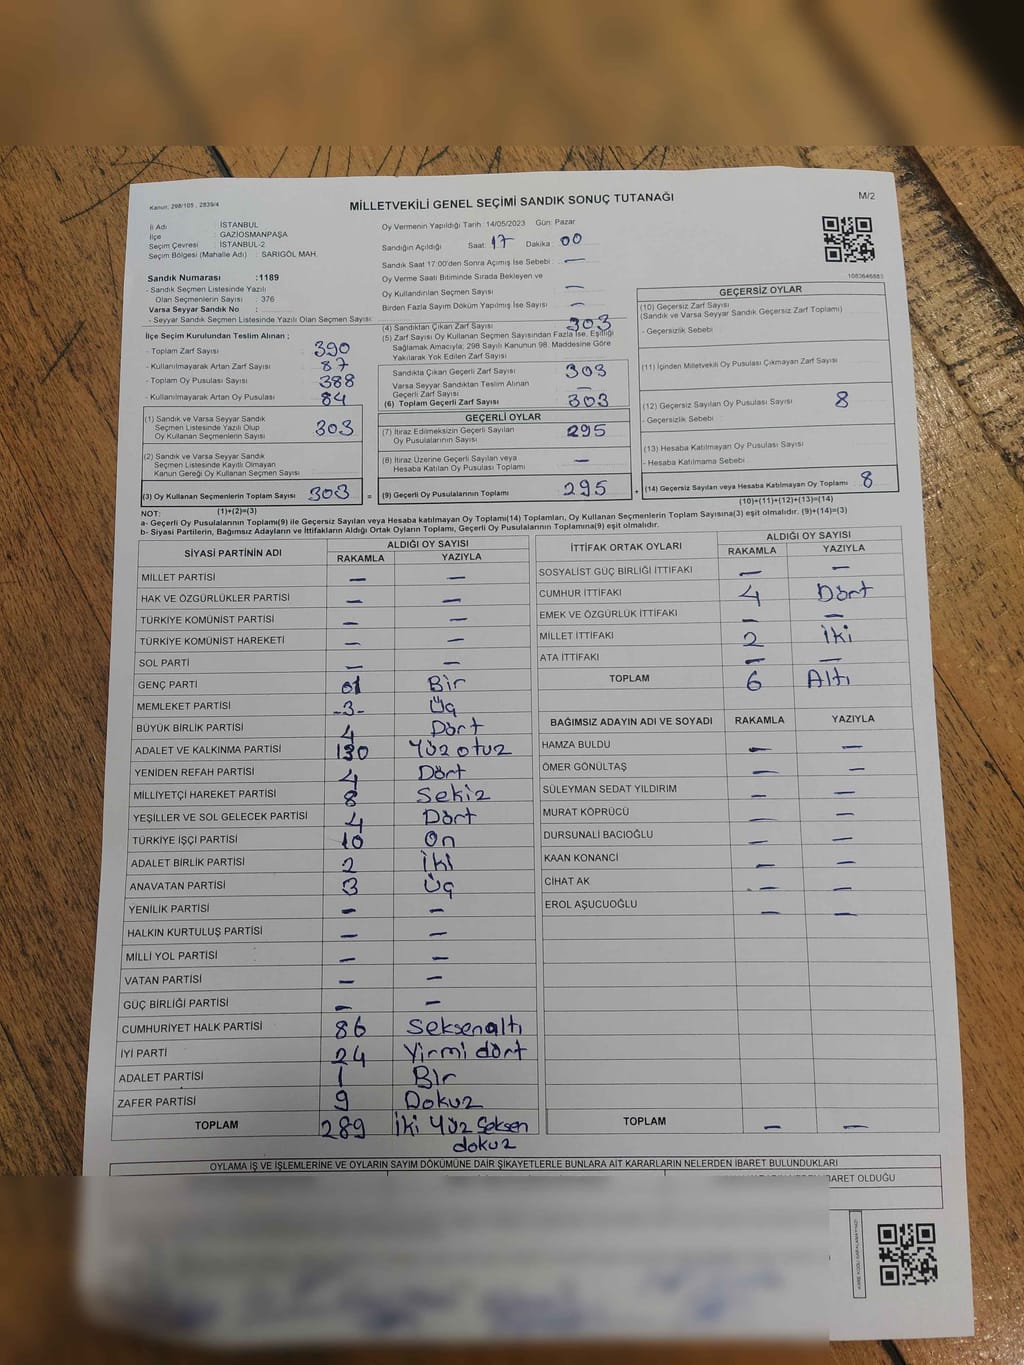 Kanun: 298/105 , 2839/4
MİLLETVEKİLİ GENEL SEÇİMİ SANDIK SONUÇ TUTANAĞI
M/2
İl Adı : İSTANBUL
İlçe : GAZİOSMANPAŞA
Seçim Çevresi : İSTANBUL-2
Seçim Bölgesi (Mahalle Adı) : SARIGÖL MAH.
Oy Vermenin Yapıldığı Tarih :14/05/2023 Gün: Pazar
Sandığın Açıldığı Saat: 17 Dakika : 00
Sandık Saat 17:00'den Sonra Açımış İse Sebebi : —
Oy Verme Saati Bitiminde Sırada Bekleyen ve
Oy Kullandırılan Seçmen Sayısı —
Birden Fazla Sayım Döküm Yapılmış İse Sayısı —
1083646883
Sandık Numarası :1189
- Sandık Seçmen Listesinde Yazılı
Olan Seçmenlerin Sayısı : 376
Varsa Seyyar Sandık No :
- Seyyar Sandık Seçmen Listesinde Yazılı Olan Seçmen Sayısı:
İlçe Seçim Kurulundan Teslim Alınan ;
- Toplam Zarf Sayısı 390
- Kullanılmayarak Artan Zarf Sayısı 87
- Toplam Oy Pusulası Sayısı 388
- Kullanılmayarak Artan Oy Pusulası 84
(1) Sandık ve Varsa Seyyar Sandık
Seçmen Listesinde Yazılı Olup
Oy Kullanan Seçmenlerin Sayısı 303
(2) Sandık ve Varsa Seyyar Sandık
Seçmen Listesinde Kayıtlı Olmayan
Kanun Gereği Oy Kullanan Seçmen Sayısı
(3) Oy Kullanan Seçmenlerin Toplam Sayısı 303 =
(1)+(2)=(3)
(4) Sandıktan Çıkan Zarf Sayısı 303
(5) Zarf Sayısı Oy Kullanan Seçmen Sayısından Fazla İse, Eşitliği
Sağlamak Amacıyla; 298 Sayılı Kanunun 98. Maddesine Göre
Yakılarak Yok Edilen Zarf Sayısı
Sandıkta Çıkan Geçerli Zarf Sayısı 303
Varsa Seyyar Sandıktan Teslim Alınan
Geçerli Zarf Sayısı —
(6) Toplam Geçerli Zarf Sayısı 303
GEÇERLİ OYLAR
(7) İtiraz Edilmeksizin Geçerli Sayılan
Oy Pusulalarının Sayısı 295
(8) İtiraz Üzerine Geçerli Sayılan veya
Hesaba Katılan Oy Pusulası Toplamı —
(9) Geçerli Oy Pusulalarının Toplamı 295 +
GEÇERSİZ OYLAR
(10) Geçersiz Zarf Sayısı
(Sandık ve Varsa Seyyar Sandık Geçersiz Zarf Toplamı)
- Geçersizlik Sebebi :
(11) İçinden Milletvekili Oy Pusulası Çıkmayan Zarf Sayısı
(12) Geçersiz Sayılan Oy Pusulası Sayısı 8
- Geçersizlik Sebebi :
(13) Hesaba Katılmayan Oy Pusulası Sayısı
- Hesaba Katılmama Sebebi :
(14) Geçersiz Sayılan veya Hesaba Katılmayan Oy Toplamı 8
(10)+(11)+(12)+(13)=(14)
NOT:
a- Geçerli Oy Pusulalarının Toplamı(9) ile Geçersiz Sayılan veya Hesaba katılmayan Oy Toplamı(14) Toplamları, Oy Kullanan Seçmenlerin Toplam Sayısına(3) eşit olmalıdır. (9)+(14)=(3)
b- Siyasi Partilerin, Bağımsız Adayların ve İttifakların Aldığı Ortak Oyların Toplamı, Geçerli Oy Pusulalarının Toplamına(9) eşit olmalıdır.
SİYASİ PARTİNİN ADI ALDIĞI OY SAYISI
RAKAMLA YAZIYLA
MİLLET PARTİSİ — —
HAK VE ÖZGÜRLÜKLER PARTİSİ — —
TÜRKİYE KOMÜNİST PARTİSİ — —
TÜRKİYE KOMÜNİST HAREKETİ — —
SOL PARTİ — —
GENÇ PARTİ 01 Bir
MEMLEKET PARTİSİ -3- Üç
BÜYÜK BİRLİK PARTİSİ 4 Dört
ADALET VE KALKINMA PARTİSİ 130 Yüz otuz
YENİDEN REFAH PARTİSİ 4 Dört
MİLLİYETÇİ HAREKET PARTİSİ 8 Sekiz
YEŞİLLER VE SOL GELECEK PARTİSİ 4 Dört
TÜRKİYE İŞÇİ PARTİSİ 10 On
ADALET BİRLİK PARTİSİ 2 İki
ANAVATAN PARTİSİ 3 Üç
YENİLİK PARTİSİ — —
HALKIN KURTULUŞ PARTİSİ — —
MİLLİ YOL PARTİSİ — —
VATAN PARTİSİ — —
GÜÇ BİRLİĞİ PARTİSİ — —
CUMHURİYET HALK PARTİSİ 86 Seksenaltı
İYİ PARTİ 24 Yirmi dört
ADALET PARTİSİ 1 Bir
ZAFER PARTİSİ 9 Dokuz
TOPLAM 289 İki Yüz Seksen
dokuz
İTTİFAK ORTAK OYLARI ALDIĞI OY SAYISI
RAKAMLA YAZIYLA
SOSYALİST GÜÇ BİRLİĞİ İTTİFAKI — —
CUMHUR İTTİFAKI 4 Dört
EMEK VE ÖZGÜRLÜK İTTİFAKI — —
MİLLET İTTİFAKI 2 İki
ATA İTTİFAKI — —
TOPLAM 6 Altı
BAĞIMSIZ ADAYIN ADI VE SOYADI RAKAMLA YAZIYLA
HAMZA BULDU — —
ÖMER GÖNÜLTAŞ — —
SÜLEYMAN SEDAT YILDIRIM — —
MURAT KÖPRÜCÜ — —
DURSUNALİ BACIOĞLU — —
KAAN KONANCİ — —
CİHAT AK — —
EROL AŞUCUOĞLU — —
TOPLAM — —
OYLAMA İŞ VE İŞLEMLERİNE VE OYLARIN SAYIM DÖKÜMÜNE DAİR ŞİKAYETLERLE BUNLARA AİT KARARLARIN NELERDEN İBARET BULUNDUKLARI
İBARET OLDUĞU